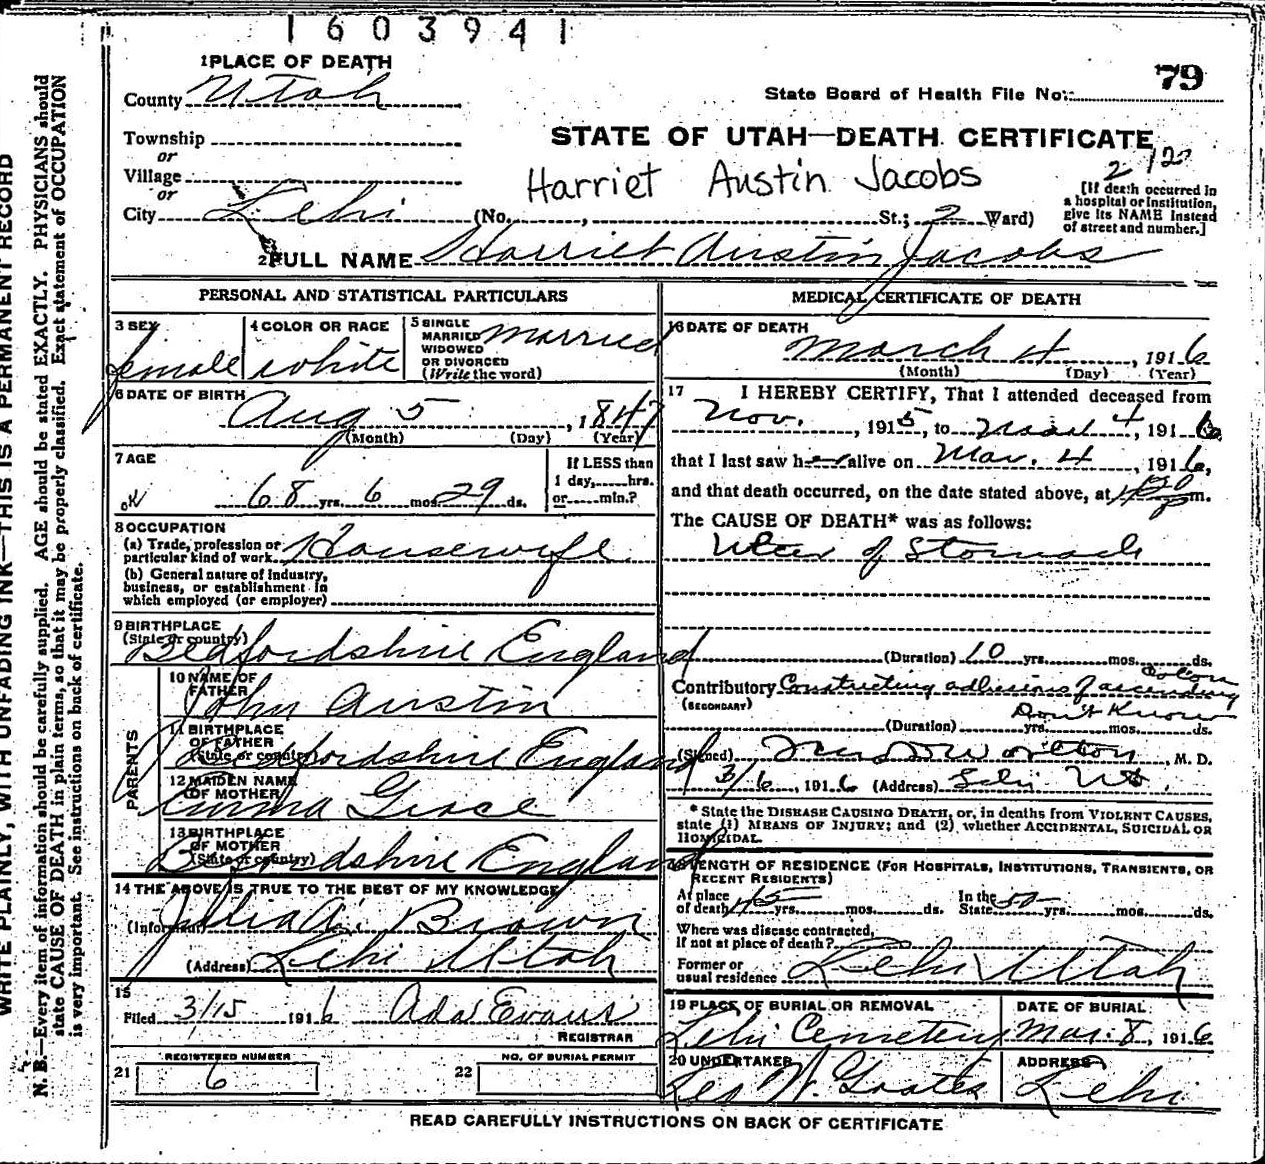 1603941
1 PLACE OF DEATH
79
County Utah
State Board of Health File No.
Township
STATE OF UTAH—DEATH CERTIFICATE
or
Village
Harriet Austin Jacobs
2 122
or
City Lehi (No. , St.; 2 Ward)
[If death occurred in
a hospital or institution,
give its NAME instead
of street and number.]
2 FULL NAME Harriet Austin Jacobs
PERSONAL AND STATISTICAL PARTICULARS
3 SEX
female
4 COLOR OR RACE
white
5 SINGLE
MARRIED
WIDOWED
OR DIVORCED
(Write the word)
married
6 DATE OF BIRTH
Aug 5, 1847
(Month) (Day) (Year)
7 AGE
OK 68 yrs. 6 mos. 29 ds.
If LESS than
1 day, hrs.
or min.?
8 OCCUPATION
(a) Trade, profession or
particular kind of work Housewife
(b) General nature of industry,
business, or establishment in
which employed (or employer)
9 BIRTHPLACE
(State or country)
Bedfordshire England
PARENTS
10 NAME OF
FATHER
John Austin
11 BIRTHPLACE
OF FATHER
(State or country)
Bedfordshire England
12 MAIDEN NAME
OF MOTHER
Emma Grace
13 BIRTHPLACE
OF MOTHER
(State or country)
Bedfordshire England
14 THE ABOVE IS TRUE TO THE BEST OF MY KNOWLEDGE
(Informant) Brown
(Address) Lehi Utah
15
Filed 3/15 1916 Ada Evans
REGISTRAR
REGISTERED NUMBER
21 6
NO. OF BURIAL PERMIT
22
MEDICAL CERTIFICATE OF DEATH
16 DATE OF DEATH
March 4, 1916
(Month) (Day) (Year)
17 I HEREBY CERTIFY, That I attended deceased from
Nov. , 1915, to Mar 4, 1916,
that I last saw her alive on Mar. 4, 1916,
and that death occurred, on the date stated above, at m.
The CAUSE OF DEATH* was as follows:
Ulcer of Stomach
(Duration) 10 yrs. mos. ds.
Contributory Constricting adhesions of ascending colon
(SECONDARY)
Don't Know
(Duration) yrs. mos. ds.
(Signed) , M. D.
3/6, 1916 (Address) Lehi Ut.
* State the DISEASE CAUSING DEATH, or, in deaths from VIOLENT CAUSES,
state (1) MEANS OF INJURY; and (2) whether ACCIDENTAL, SUICIDAL OR
HOMICIDAL.
18 LENGTH OF RESIDENCE (FOR HOSPITALS, INSTITUTIONS, TRANSIENTS, OR
RECENT RESIDENTS)
At place
of death 45 yrs. mos. ds.
In the
State 50 yrs. mos. ds.
Where was disease contracted,
if not at place of death?
Former or
usual residence Lehi Utah
19 PLACE OF BURIAL OR REMOVAL
Lehi Cemetery
DATE OF BURIAL
Mar. 8, 1916
20 UNDERTAKER
Geo N. Goates
ADDRESS
Lehi
READ CAREFULLY INSTRUCTIONS ON BACK OF CERTIFICATE
WRITE PLAINLY, WITH UNFADING INK—THIS IS A PERMANENT RECORD
N. B.—Every item of information should be carefully supplied. AGE should be stated EXACTLY. PHYSICIANS should
state CAUSE OF DEATH in plain terms, so that it may be properly classified. Exact statement of OCCUPATION
is very important. See instructions on back of certificate.